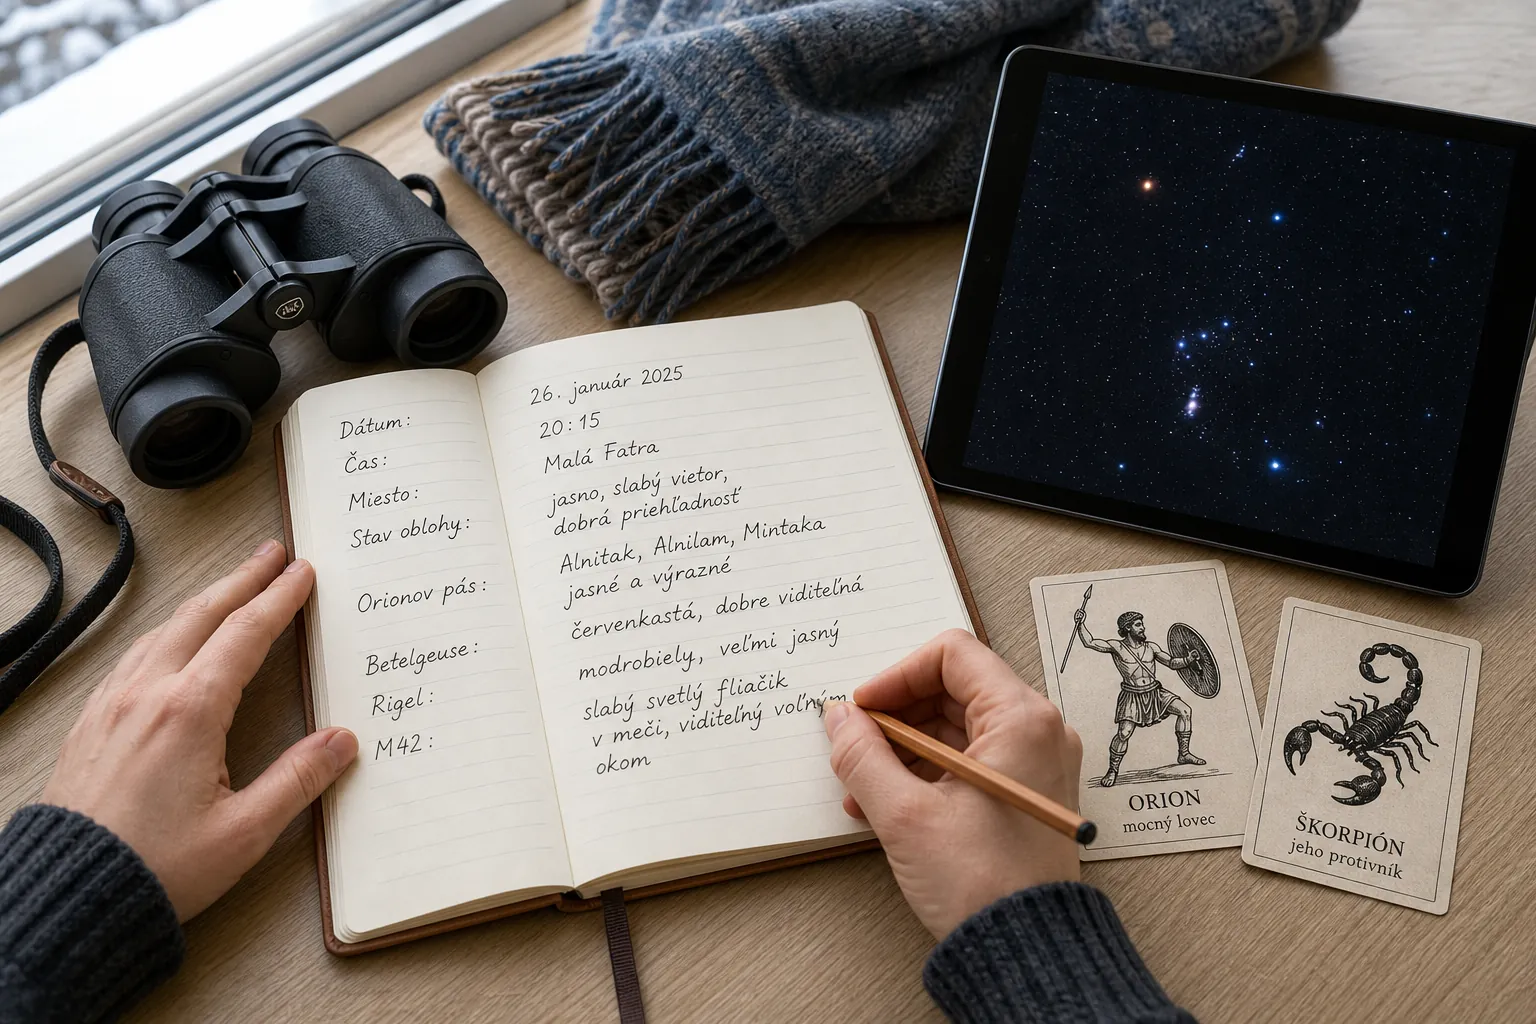 Dátum:
26. január 2025
Čas:
20:15
Miesto:
Malá Fatra
Stav oblohy:
jasno, slabý vietor,
dobrá priehľadnosť
Orionov pás:
Alnitak, Alnilam, Mintaka
jasné a výrazné
Betelgeuse:
červenkastá, dobre viditeľná
Rigel:
modrobiely, veľmi jasný
M42:
slabý svetlý fliačik
v meči, viditeľný voľným
okom
ORION
mocný lovec
ŠKORPIÓN
jeho protivník